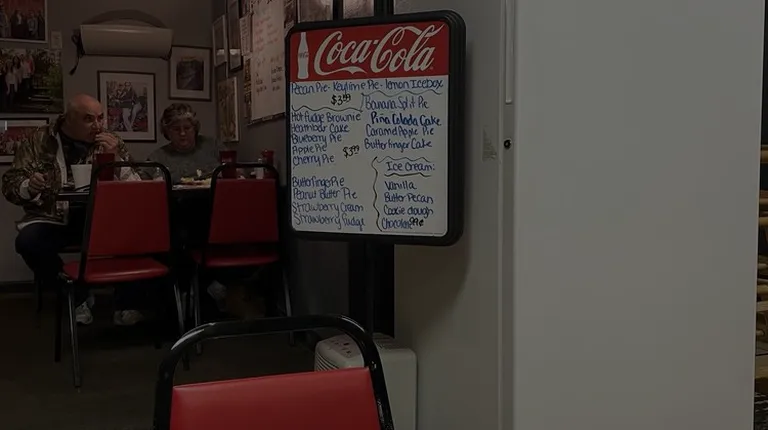 Coca-Cola
Pecan Pie - Keylime Pie - Lemon Icebox
$3.49
Hot fudge Brownie
Heathbar Cake
Blueberry Pie
Apple Pie
Cherry Pie
$3.99
Butterfinger Pie
Peanut Butter Pie
Strawberry Cream
Strawberry fudge
Banana Split Pie
Piña Colada Cake
Caramel Apple Pie
Butterfinger Cake
Ice Cream:
Vanilla
Butter Pecan
Cookie dough
Chocolate 99¢